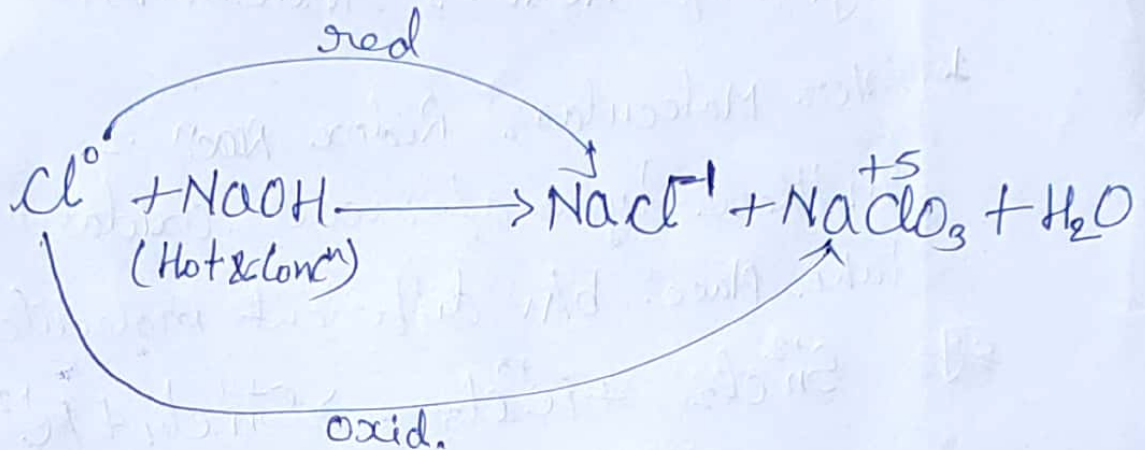 red
Cl⁰ + NaOH → NaCl⁻¹ + NaClO₃ + H₂O
+5
(Hot & Concⁿ)
oxid.